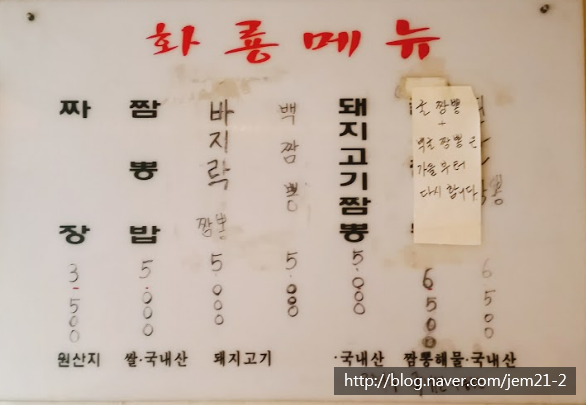 화룡메뉴
짜장 3.500
짬뽕밥 5.000
바지락짬뽕 5.000
백짬뽕 5.000
돼지고기짬뽕 5.000
6500
뽕 6500
굴짬뽕
+
백굴짬뽕은
가을부터
다시합니다
원산지 쌀·국내산 돼지고기 ·국내산 짬뽕해물·국내산
http://blog.naver.com/jem21-2